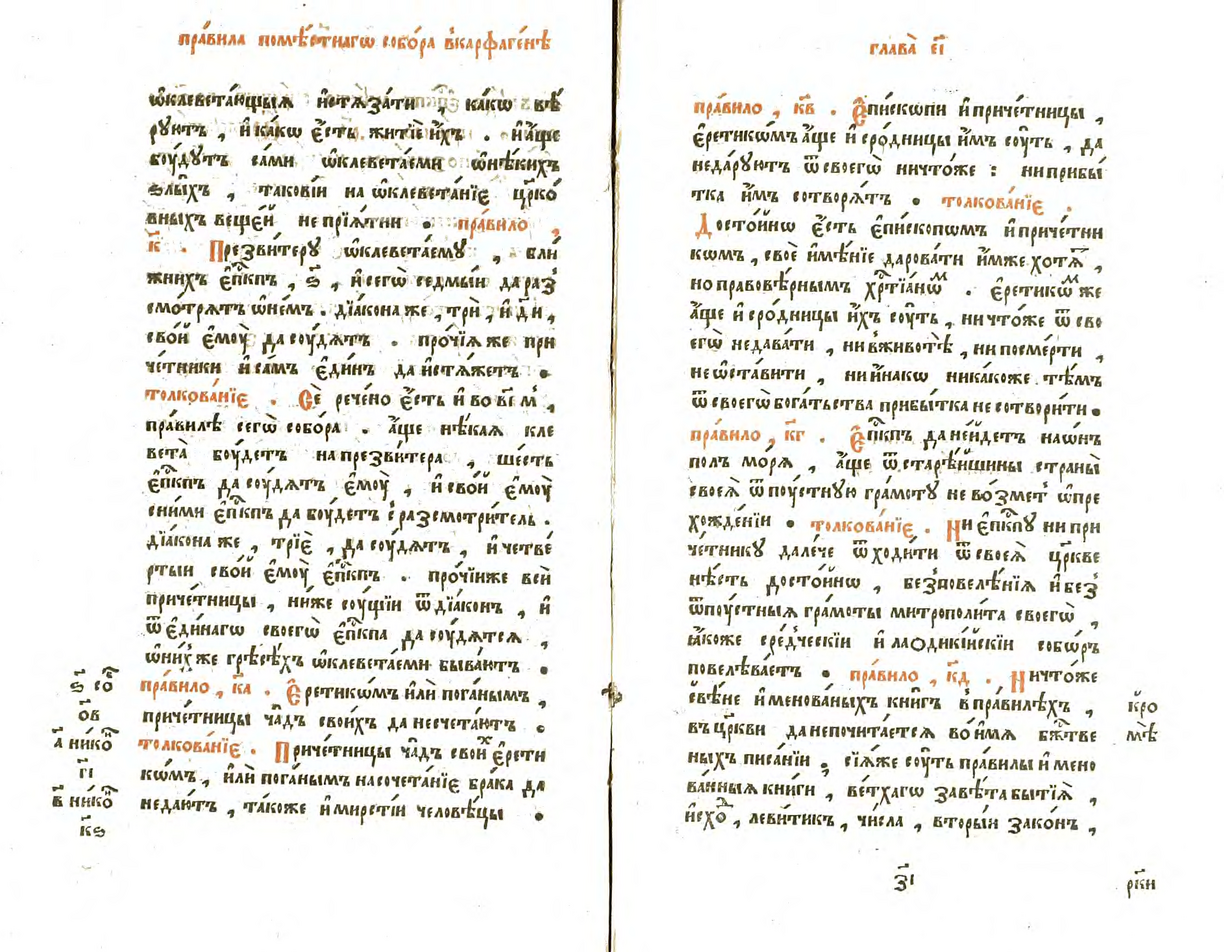 пра́вила помѣ́стнагѡ собо́ра вкарѳаге́нѣ
ѡ҆клевета́ющыѧ и҆стѧза́ти , ка́кѡ вѣ́
рꙋютъ , и҆ ка́кѡ є҆́сть житїѐ и҆́хъ . и҆ а҆́ще
бꙋ́дꙋтъ са́ми ѡ҆клевета́еми ѡ҆ нѣ́кихъ
ѕлы́хъ , такові́и на ѡ҆клевета́нїе цр҃ко́
вныхъ веще́й не прїѧ́тни . пра́вило ,
к҃ . Презви́терꙋ ѡ҆клевета́емꙋ , бли́
жнихъ є҆пк҃пъ , ѕ҃ , и҆ сегѡ̀ седмы́и да раз
смо́трѧтъ ѡ҆ не́мъ . дїа́кона же , трѝ , и҆ д҃и ,
сво́й є҆мꙋ̀ да сꙋ́дѧтъ . про́чїѧ же при
че́тники и҆ са́мъ є҆ди́нъ да и҆стѧ́жетъ .
толкова́нїе . Сѐ рече́но є҆́сть и҆ во в҃і м ,
пра́вилѣ сегѡ̀ собо́ра . а҆́ще нѣ́каѧ кле
вета̀ бꙋ́детъ на презви́тера , ше́сть
є҆пк҃пъ да сꙋ́дѧтъ є҆мꙋ̀ , и҆ сво́й є҆мꙋ̀
сни́ми є҆пк҃пъ да бꙋ́детъ с̾разсмотри́тель .
дїа́кона же , трїѐ , да сꙋ́дѧтъ , и҆ четве́
ртыи сво́й є҆мꙋ̀ є҆пк҃пъ . про́чїиже всѝ
приче́тницы , ни́же сꙋ́щїи ѿ дїа́конъ , и҆
ѿ є҆ди́нагѡ своегѡ̀ є҆пк҃па да сꙋ́дѧтсѧ ,
ѡ҆ ни́хже грѣсѣ́хъ ѡ҆клевета́еми быва́ютъ .
пра́вило , к҃а . Є҆ретикѡ́мъ и҆лѝ пога́нымъ ,
приче́тницы ча̑дъ свои́хъ да несчета́ютъ .
толкова́нїе . Приче́тницы ча̑дъ свои́х є҆рети
кѡ́мъ , и҆лѝ пога́нымъ на сочета́нїе бра́ка да
недаю́тъ , та́коже и҆ мирсті́и человѣ́цы .
ѕ҃ со
о҃в
а҃ нико
г҃і
в҃ нико
к҃ѕ
глава̀ е҃і
пра́вило , к҃в . Є҆пи́скопи и҆ приче́тницы ,
є҆ретикѡ́мъ а҆́ще и҆ сро́дницы и҆̀мъ сꙋ́ть , да
неда́рꙋютъ ѿ своегѡ̀ ничто́же : ни прибы́
тка и҆̀мъ сотворѧ́тъ . толкова́нїе .
Досто́йно є҆́сть є҆пи́скопѡмъ и҆ приче́тни
кѡмъ , своѐ и҆мѣ́нїе дарова́ти и҆̀мже хотѧ́т ,
но правовѣ́рнымъ хр҃тїа́нѡм . є҆ретикѡ́м же
а҆́ще и҆ сро́дницы и҆́хъ сꙋ́ть , ничто́же ѿ сво
егѡ̀ недава́ти , ни вживотѣ̀ , ни по сме́рти ,
не ѡ҆ста́вити , ни и҆на́кѡ ника́коже тѣ́мъ
ѿ своегѡ̀ бога́тьства прибы́тка не сотвори́ти .
пра́вило , к҃г . Є҆пк҃пъ да не и҆́детъ на ѡ҆́нъ
по́лъ мо́рѧ , а҆́ще ѿ старѣ́йшины страны̀
своеѧ̀ ѿпꙋ́стнꙋю гра́мотꙋ не во́змет ѡ҆ пре
хожде́нїи . толкова́нїе . Ни є҆пк҃пꙋ ни при
че́тникꙋ дале́че ѿходи́ти ѿ своеѧ̀ цр҃кве
нѣ́сть досто́йно , без̾повелѣ́нїѧ и҆ без̾
ѿпꙋ́стныѧ гра́моты митрополи́та своегѡ̀ ,
ꙗ҆́коже сре́дческїи и҆ лаодикі́йскїи собо́ръ
повелѣва́етъ . пра́вило , к҃д . Ничто́же
свѣ́не и҆менова́ныхъ кни́гъ в̾пра́вилѣхъ ,
въ цр҃кви да непочита́етсѧ во и҆́мѧ бж҃тве
ныхъ писа́нїи . сїѧ́же сꙋ́ть пра́вилы и҆мено
ва́нныѧ кни́ги , ве́тхагѡ завѣ́та бытїѧ̀ ,
и҆схо , леви́тикъ , чи́сла , вторы́и зако́нъ ,
кро́
мѣ
з҃і
рк҃и